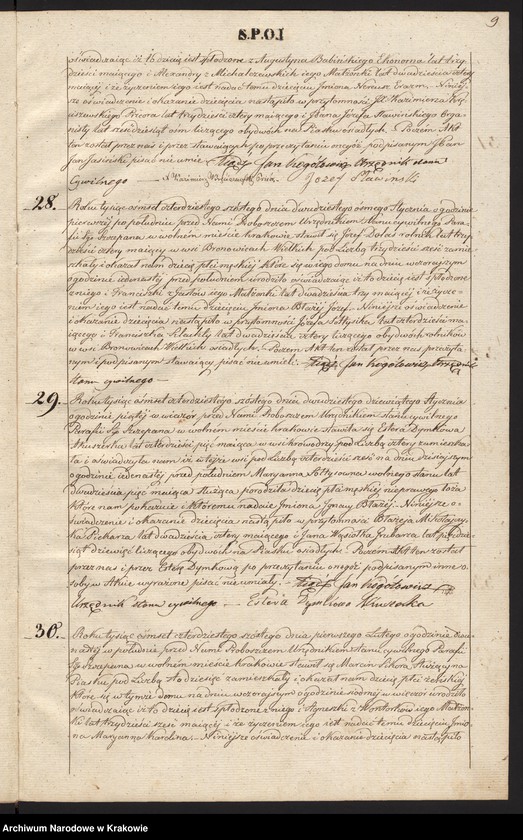 S.P.O.J
9
oświadczając iż to dziecię jest spłodzone z Augustyna Babińskiego Ekonoma lat trzy
dzieści mającego i Alexandry z Michalczewskich jego Małżonki lat dwadzieścia cztery
mającej i że życzeniem jego jest nadać temu dziecięciu Imiona Nereusz Erazm. Niniej
sze oświadczenie i okazanie dziecięcia nastąpiło w przytomności Kazimierza
Prucra lat trzydzieści cztery mającego i Jana Józefa Sławińskiego Orga
nisty lat siedzących obydwóch na Piasku osiadłych. Poczem Akt
ten został przez nas i przez stawających po przeczytaniu onegóż podpisanym Jban
Jan Jasiński pisać nie umie. Xiądz Jan Urzędnik stanu
Cywilnego Kazimierz Józef Sławiński
28. Roku tysiąc ośmset czterdziestego szóstego dnia dwudziestego ósmego Stycznia o godzinie
pierwszej po południu przed Nami Proboszczem Urzędnikiem Stanu cywilnego Para
fii Sgo Szczepana w wolnem mieście Krakowie stawił się Józef Dolas rolnik lat trzy
dzieści cztery mający w wsi Bronowicach Wielkich pod Liczbą trzydzieści sześć zamie
szkały i okazał nam dziecię płci męskiej które się w jego domu na dniu wczorajszym o
godzinie jedenastej przed południem urodziło oświadczając iż to dziecię jest spłodzone
z niego i Franciszki z Gustów jego Małżonki lat dwadzieścia trzy mającej i że życze
niem jego jest nadać temu dziecięciu Imiona Błażej Józef. Niniejsze oświadczenie
i okazanie dziecięcia nastąpiło w przytomności Józefa Sołtysika lat czterdzieści ma
jącego i Franciszka lat dwadzieścia cztery liczącego obydwóch rolników
w wsi Bronowicach Wielkich osiadłych. Poczem Akt ten został przez nas przeczyta
nym i podpisanym stawający pisać nie umieli. Xiądz Jan Urzędnik
stanu cywilnego
29. Roku tysiąc ośmset czterdziestego szóstego dnia dwudziestego dziewiątego Stycznia
o godzinie piątej w wieczór przed Nami Proboszczem Urzędnikiem stanu cywilnego
Parafii Sgo Szczepana w wolnem mieście Krakowie stawiła się Estera Dymkowa
Akuszerka lat czterdzieści pięć mająca w wsi Krowodrzy pod Liczbą cztery zamieszka
ła i oświadczyła nam iż w tejże wsi pod Liczbą czterdzieści sześć na dniu dzisiejszym
o godzinie jedenastej przed południem Maryanna Sołtysowna wolnego stanu lat
dwadzieścia pięć mająca Służąca porodziła dziecię płci męskiej nieprawego łoża
które nam pokazuje i któremu nadaje Imiona Ignacy Błażej. Niniejsze o
świadczenie i okazanie dziecięcia nastąpiło w przytomności Błażeja Mikołajczy
ka Piekarza lat dwadzieścia cztery mającego i Jana Wąsiołka Grabarza lat pięćdzie
siąt dziewięć liczącego obydwóch na Piasku osiadłych. Poczem Akt ten został
przez nas i przez Esterę Dymkową po przeczytaniu onegóż podpisanym inne o
soby w Akcie wyrażone pisać nie umiały. Xiądz Jan
Urzędnik stanu cywilnego Estera Dymkowa
30. Roku tysiąc ośmset czterdziestego szóstego dnia pierwszego Lutego o godzinie dwu
nastej w południe przed Nami Proboszczem Urzędnikiem stanu cywilnego Parafii
Sgo Szczepana w wolnem mieście Krakowie stawił się Marcin Sikora Służący na
Piasku pod Liczbą sto dziesięć zamieszkały i okazał nam dziecię płci żeńskiej
które się w tymże domu na dniu wczorajszym o godzinie siódmej w wieczór urodziło
oświadczając iż to dziecię jest spłodzone z niego i Agnieszki z jego Małżon
ki lat trzydzieści sześć mającej i że życzeniem jego jest nadać temu dziecięciu Imio
na Maryanna Karolina. Niniejsze oświadczenie i okazanie dziecięcia nastąpiło
Archiwum Narodowe w Krakowie